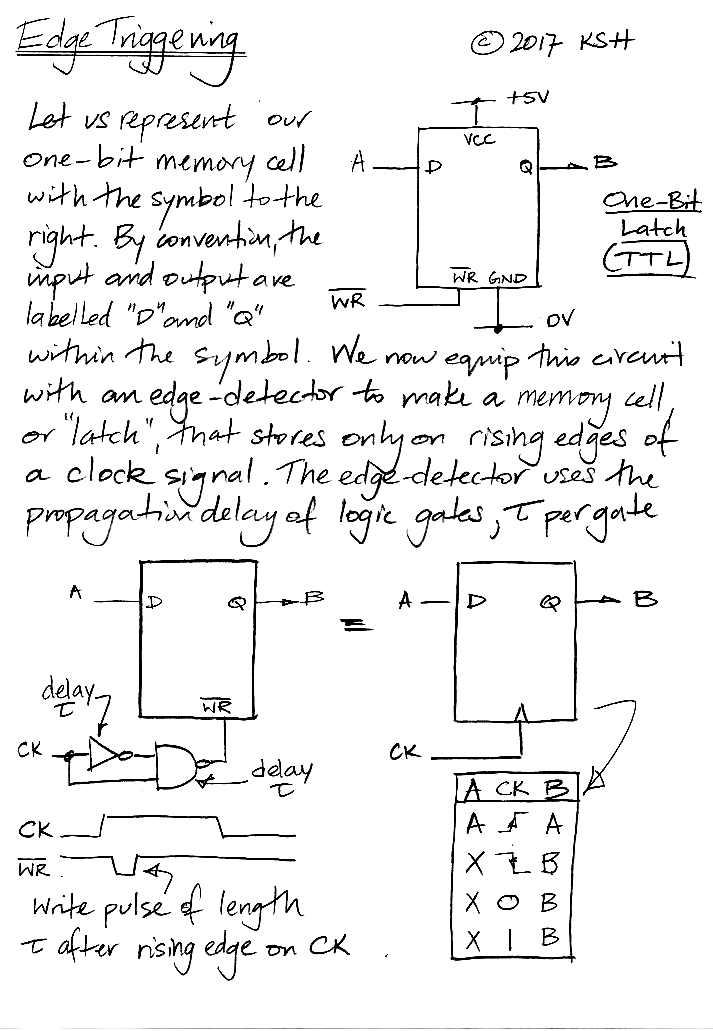 Edge Triggering
© 2017 KSH
Let us represent our
one-bit memory cell
with the symbol to the
right. By convention, the
input and output are
labelled "D" and "Q"
within the symbol. We now equip this circuit
with an edge-detector to make a memory cell,
or "latch", that stores only on rising edges of
a clock signal. The edge-detector uses the
propagation delay of logic gates, τ per gate
+5V
VCC
A D Q B
One-Bit
Latch
(TTL)
WR GND
WR
0V
A D Q B
WR
delay
τ
CK
delay
τ
=
A D Q B
CK
CK
WR
Write pulse of length
τ after rising edge on CK.
A CK B
A A
X B
X 0 B
X 1 B